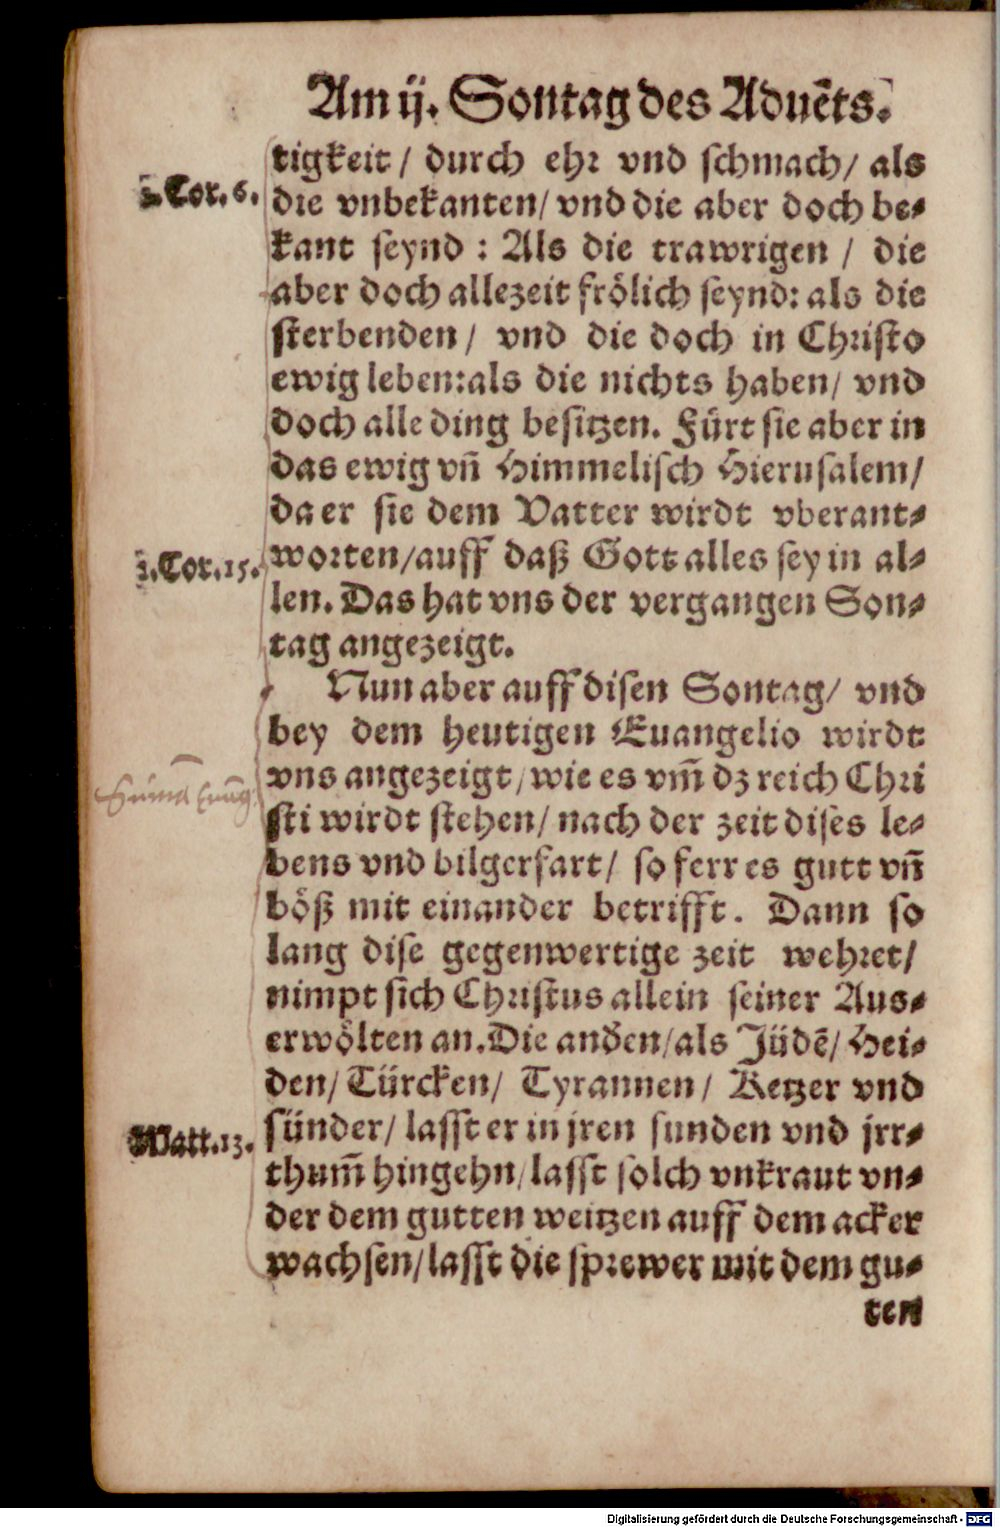 Am ij. Sontag des Aduẽts.
tigkeit / durch ehr vnd schmach/ als
2.Cor.6.
die vnbekanten/ vnd die aber doch be⸗
kant seynd : Als die trawrigen / die
aber doch allezeit frölich seynd: als die
sterbenden / vnd die doch in Christo
ewig leben:als die nichts haben/ vnd
doch alle ding besitzen. Fürt sie aber in
das ewig vñ Himmelisch Hierusalem/
da er sie dem Vatter wirdt vberant⸗
1.Cor.15.
worten/auff daß Gott alles sey in al⸗
len. Das hat vns der vergangen Son⸗
tag angezeigt.
Nun aber auff disen Sontag/ vnd
bey dem heutigen Euangelio wirdt
vns angezeigt/wie es vm̃ dz reich Chri
sti wirdt stehen/ nach der zeit dises le⸗
bens vnd bilgerfart/ so ferr es gutt vñ
böß mit einander betrifft. Dann so
lang dise gegenwertige zeit wehret/
nimpt sich Christus allein seiner Aus⸗
erwölten an.Die andˀen/als Jüdẽ/ Hei⸗
den/ Türcken/ Tyrannen / Ketzer vnd
sünder/ lasst er in jren sunden vnd jrr⸗
Matt.13.
thum̃ hingehn/lasst solch vnkraut vn⸗
der dem gutten weitzen auff dem acker
wachsen/lasst die sprewer mit dem gu⸗
ten
Digitalisierung gefördert durch die Deutsche Forschungsgemeinschaft - DFG